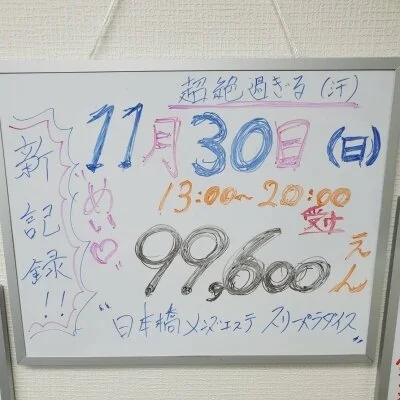 超絶過ぎる(汗)
11月30日(日)
新記録!!
"めい♡"
13:00~20:00
受付
99,600えん
"日本橋メンズエステ スリーパラダイス"